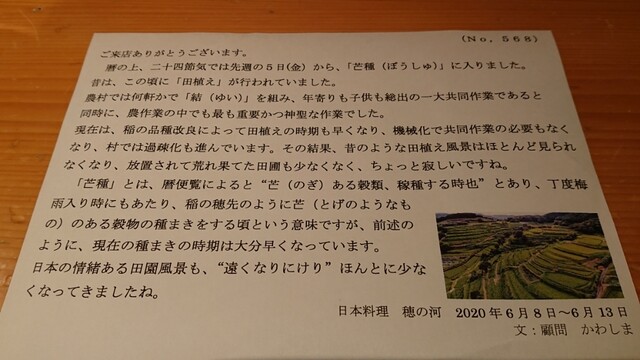 (No, 568)
ご来店ありがとうございます。
暦の上、二十四節気では先週の5日(金)から、「芒種（ぼうしゅ）」に入りました。
昔は、この頃に「田植え」が行われていました。
農村では何軒かで「結（ゆい）」を組み、年寄りも子供も総出の一大共同作業であると
同時に、農作業の中でも最も重要かつ神聖な作業でした。
現在は、稲の品種改良によって田植えの時期も早くなり、機械化で共同作業の必要もなく
なり、村では過疎化も進んでいます。その結果、昔のような田植え風景はほとんど見られ
なくなり、放置されて荒れ果てた田圃も少なくなく、ちょっと寂しいですね。
「芒種」とは、暦便覧によると“芒（のぎ）ある穀類、稼種する時也”とあり、丁度梅
雨入り時にもあたり、稲の穂先のように芒（とげのようなも
の）のある穀物の種まきをする頃という意味ですが、前述の
ように、現在の種まきの時期は大分早くなっています。
日本の情緒ある田園風景も、“遠くなりにけり”ほんとに少な
くなってきましたね。
日本料理　穂の河　2020年6月8日～6月13日
文：顧問　かわしま